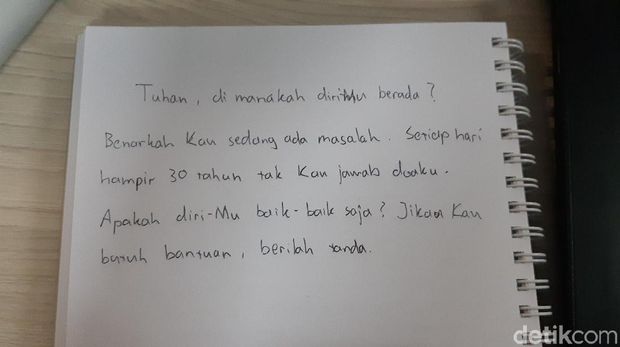 Tuhan, di manakah diriMu berada?
Benarkah Kau sedang ada masalah. Setiap hari
hampir 30 tahun tak Kau jawab doaku.
Apakah diri-Mu baik-baik saja? Jikaa Kau
butuh bantuan, berilah tanda.
detikcom